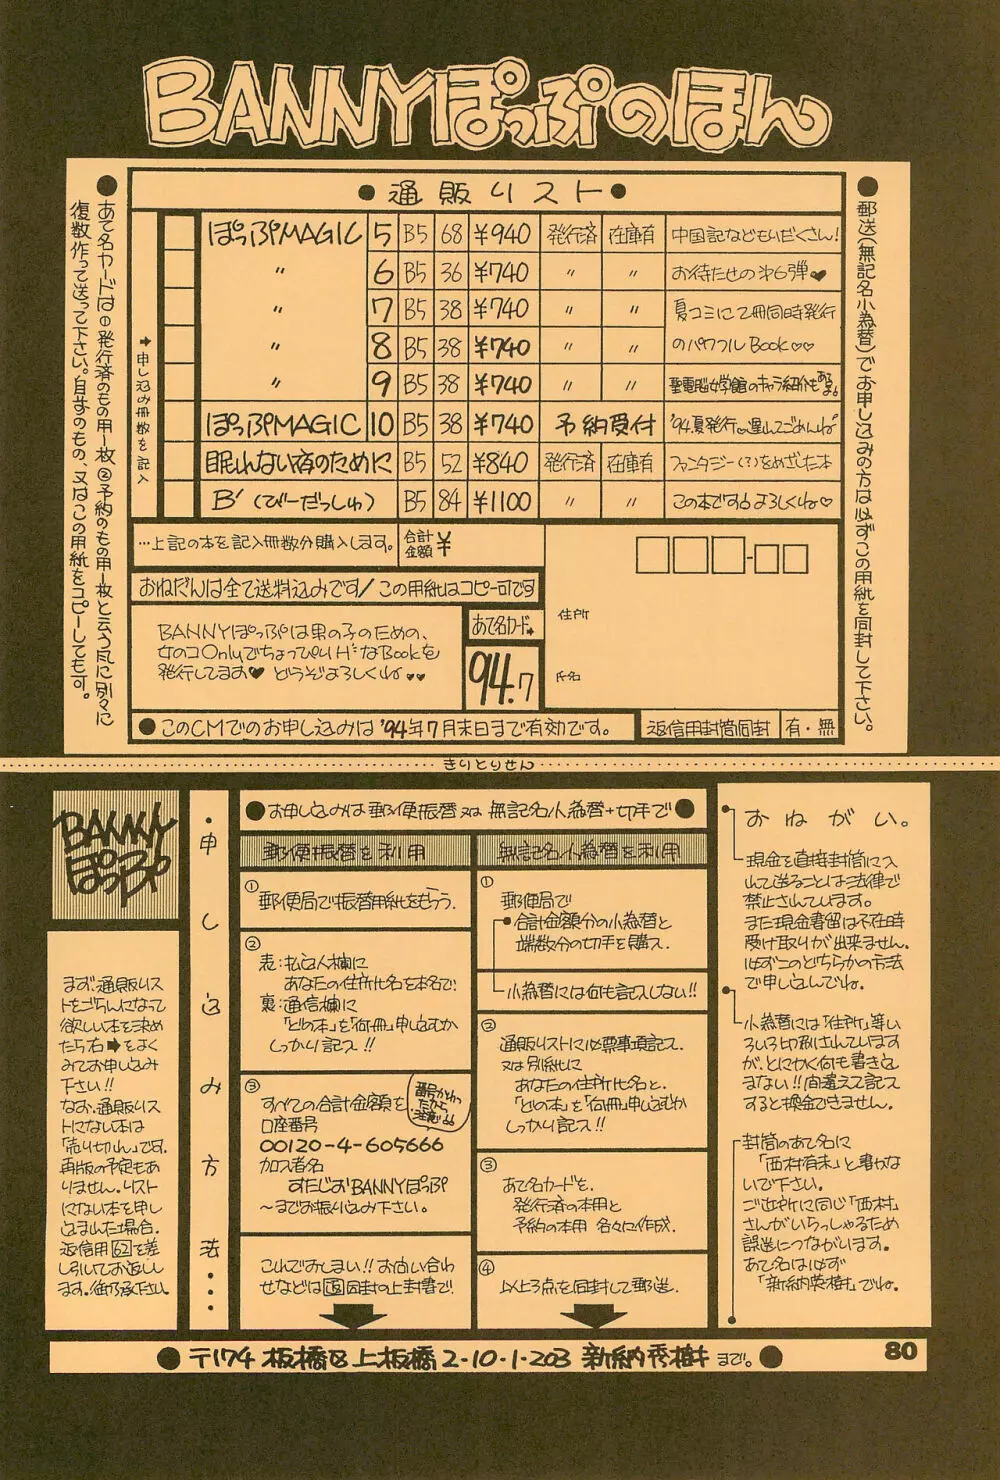 BANNYぽっぷのほん
●通販リスト●
ぽっぷMAGIC 5 B5 68 ¥940 発行済 在庫有 中国記などもりだくさん!
〃 6 B5 36 ¥740 〃 〃 お待たせの第6弾♥
〃 7 B5 38 ¥740 〃 〃 夏コミにて2冊同時発行
〃 8 B5 38 ¥740 〃 〃 のパワフルBook♡♡
〃 9 B5 38 ¥740 〃 〃 聖電脳女学館のキャラ紹介もあるよ。
ぽっぷMAGIC 10 B5 38 ¥740 予約受付 '94.夏発行♡遅れてごめんね
眠れない夜のために B5 52 ¥840 発行済 在庫有 ファンタジー(?)をめざした本
B′(びーだっしゅ) B5 84 ¥1100 〃 〃 この本です。よろしくね♡
➡申し込み冊数を記入
…上記の本を記入冊数分購入します。
合計金額 ¥
おねだんは全て送料込みです/この用紙はコピー可です
BANNYぽっぷは男の子のための、
女のコOnlyでちょっぴりHなBookを
発行してます♥どうぞよろしくね♥♥
あて名カード→
94.7
住所
氏名
●このCMでのお申し込みは'94年7月末日まで有効です。
返信用封筒同封 有・無
●郵送(無記名小為替)でお申し込みの方は必ずこの用紙を同封して下さい。
●あて名カードは①発行済のもの用1枚②予約のもの用1枚と云う風に別々に
複数作って送って下さい。自すのもの、又はこの用紙をコピーしても可。
きりとりせん
BANNYぽっぷ
まず、通販リス
トをごらんになって
欲しい本を決め
たら右➡をよく
みてお申し込み
下さい!!
なお、通販リス
トにない本は
「売り切れ」です。
再版の予定もあ
りません。リスト
にない本を申し
込まれた場合、
返信用62を差
し引いてお返しし
ます。御了承下さい。
・申し込み方法・・・
●お申し込みは郵便振替又は無記名小為替+切手で●
郵便振替を利用
①
郵便局で振替用紙をもらう。
②
表:払込人欄に
あなたの住所氏名を本名で!
裏:通信欄に
「どの本」を「何冊」申し込むか
しっかり記入!!
③
すべての合計金額を
口座番号
00120-4-605666
加入者名
すたじおBANNYぽっぷ
〜までお振り込み下さい。
番号かわったから注意!
これでおしまい!!お問い合わ
せなどは同封の上封書で。
無記名小為替を利用
①
郵便局で
●合計金額分の小為替と
端数分の切手を購入。
小為替には何も記入しない!!
②
通販リストに必要事項記入。
又は別紙に
あなたの住所氏名と、
「どの本」を「何冊」申し込むか
しっかり記入!!
③
あて名カードを、
発行済の本用と
予約の本用 各々に作成。
④
以上3点を同封して郵送。
おねがい。
現金を直接封筒に入
れて送ることは法律で
禁止されています。
また現金書留は不在時
受け取りが出来ません。
必ずこのどちらかの方法
で申し込んでね。
小為替には「住所」等い
ろいろ印刷されています
が、とにかく何も書き込
まない!!間違えて記入
すると換金できません。
封筒のあて名に
「西村有未」と書かな
いで下さい。
ご近所に同じ「西村」
さんがいらっしゃるため
誤送につながります。
あて名は必ず
「新納英樹」でね。
●〒174 板橋区上板橋2-10-1-203 新納秀樹まで。●
80